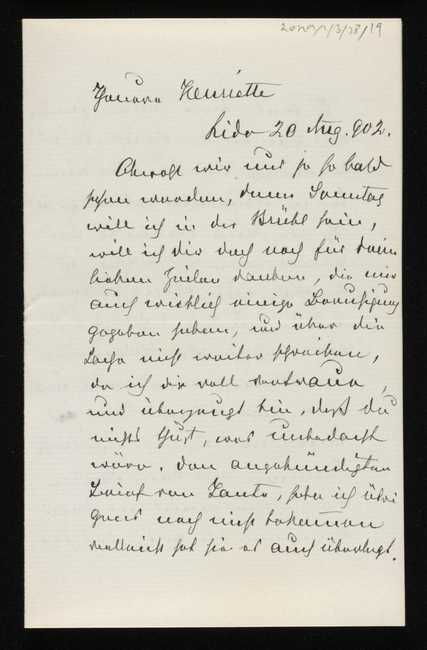 Theuere Henriette
Lido 20 Aug. 902.
Obwohl wir uns ja so bald
sehen werden, denn Sonntag
will ich in der Brühl sein,
will ich dir doch noch für deine
lieben Zeilen danken, die mir
auch wirklich einige Beruhigung
gegeben haben, und über die
Sache nicht weiter schreiben,
da ich dir voll vertraue,
und überzeugt bin, daß du
nichts thust, was unbedacht
wäre. Den angekündigten
Brief von Tante, habe ich übri
gens noch nicht bekommen
vielleicht hat sie es auch überlegt.